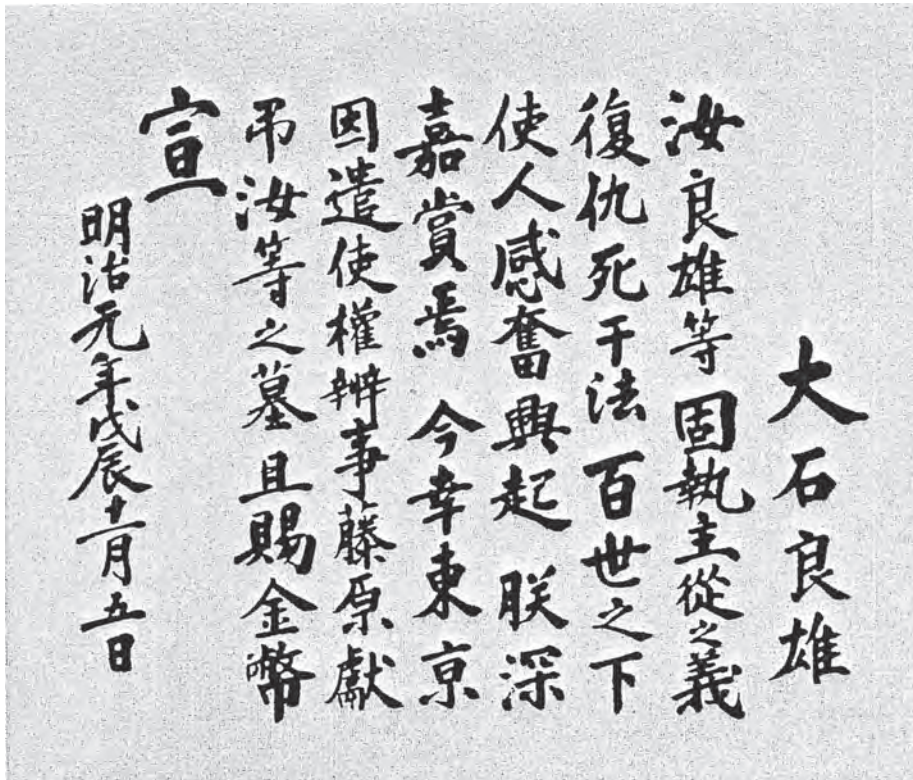 大石良雄
汝良雄等固執主從之義
復仇死于法百世之下
使人感奮興起朕深
嘉賞焉今幸東京
因遣使權辨事藤原獻
弔汝等之墓且賜金幣
宣
明治元年戊辰十一月五日